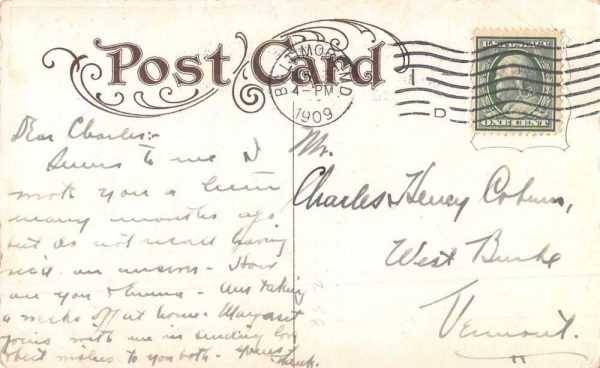 Post Card
BALTIMORE, MD
4-PM
1909
D
U.S. POSTAGE
ONE CENT
Dear Charles:-
Seems to me I
wrote you a letter
many months ago
but do not recall having
rec'd an answer - How
are you & Emma - Am taking
a weeks off at home. Margaret
joins with me in sending
best wishes to you both - Yours
Mr.
Charles Henry Coburn,
West Burke
Vermont.